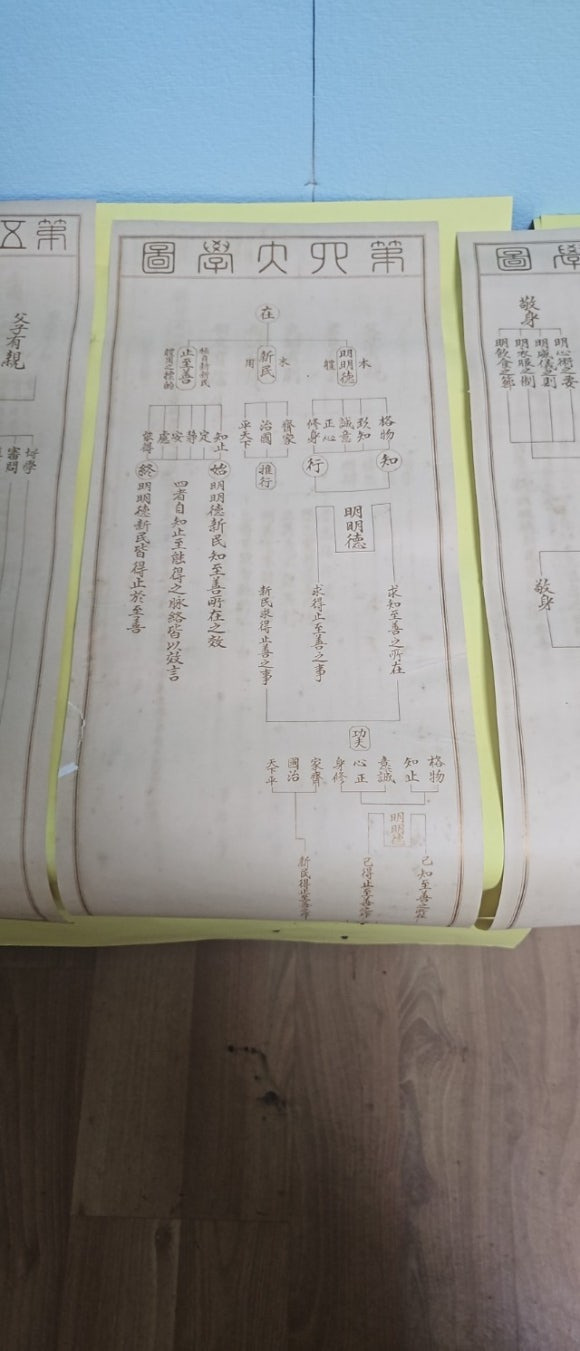 學圖
敬身
明心術之要
明威儀之則
明衣服之制
明飲食之節
敬身
第四大學圖
在
本
明明德
體
末
新民
用
止至善
體用之標的
格物
致知
誠意
正心
修身
齊家
治國
平天下
知止
定
靜
安
慮
能得
知
行
推行
始
明明德新民知至善所在之效
四者自知止至能得之脉絡皆以效言
終
明明德新民皆得止於至善
明明德
求知至善之所在
求得止至善之事
新民求得止至善之事
功夫
格物
知止
意誠
心正
身修
家齊
國治
天下平
明明德
已知至善之
已得止至善
新民得止至善
第五
父子有親
博學
審問